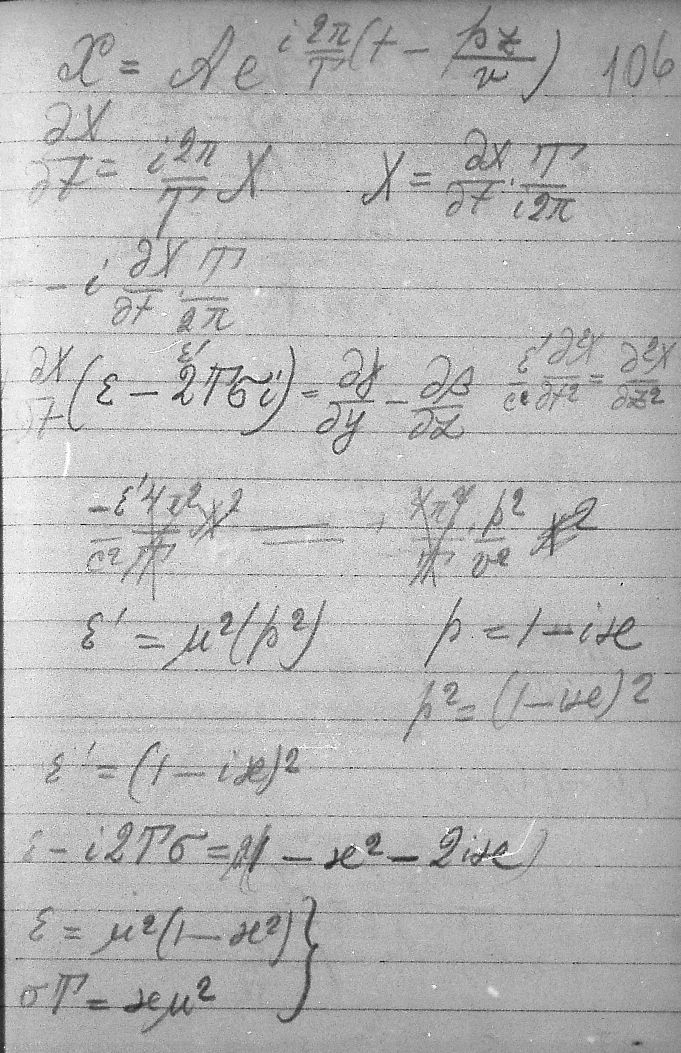 X = A e^{i 2π/T (t - pz/v)} 106
∂X/∂t = i2π/T X X = ∂X/∂t · T/i2π
- i ∂X/∂t · T/2π
ε'
∂X/∂t (ε - 2Tσi) = ∂γ/∂y - ∂β/∂z ε'/c² ∂²X/∂t² = ∂²X/∂z²
-ε'4π²/c²T² X² = p²/v² X²
ε' = n²(p²) p = 1 - iϰ
p² = (1 - iϰ)²
ε' = (1 - iϰ)²
ε - i2Tσ = n(1 - ϰ² - 2iϰ)
ε = n²(1 - ϰ²) }
σT = ϰn²